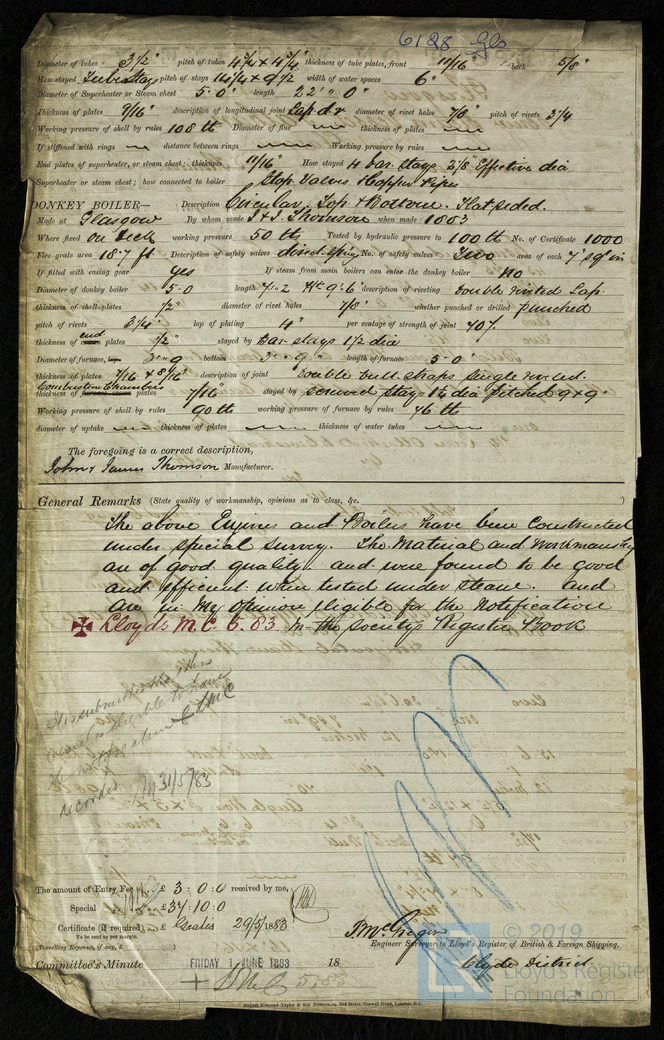 6128 Gls
Diameter of tubes 3 1/2" pitch of tubes 4 3/4 x 4 3/4" thickness of tube plates, front 11/16" back 5/8"
How stayed Tube Stays pitch of stays 14 1/4 x 9 1/2 width of water spaces 6"
Diameter of Superheater or Steam chest 5'-0" length 22' " 0"
Thickness of plates 9/16" description of longitudinal joint Lap d.r diameter of rivet holes 7/8" pitch of rivets 3 1/4
Working pressure of shell by rules 108 lb Diameter of flue thickness of plates
If stiffened with rings distance between rings Working pressure by rules
End plates of superheater, or steam chest; thickness 11/16" How stayed 4 bar stays 2 5/8" Effective dia
Superheater or steam chest; how connected to boiler Stop Valves & Copper Pipes
DONKEY BOILER— Description Circular, Top & Bottom. Flat sided.
Made at Glasgow By whom made J & J. Thomson when made 1883
Where fixed on Deck working pressure 50 lb Tested by hydraulic pressure to 100 lb No. of Certificate 1000
Fire grate area 18.7 ft Description of safety valves direct spring No. of safety valves Two area of each 7" sq in
If fitted with easing gear yes If steam from main boilers can enter the donkey boiler no
Diameter of donkey boiler 5-0 length 7'-2 Ht 9'.6" description of riveting Double riveted Lap.
thickness of shell plates 1/2" diameter of rivet holes 7/8" whether punched or drilled punched
pitch of rivets 3 1/4" lap of plating 4" per centage of strength of joint 70%
thickness of end plates 1/2" stayed by Bar stays 1 1/2 dia
Diameter of furnace, top 3' " 9 bottom 3' " 9" length of furnace 5-0
thickness of plates 7/16 & 8/16" description of joint Double butt straps single riveted.
Combustion Chambers
thickness of furnace crown plates 7/16" stayed by screwed stays 1 1/4 dia pitched 9 x 9"
Working pressure of shell by rules 90 lb working pressure of furnace by rules 76 lb
diameter of uptake thickness of plates thickness of water tubes
The foregoing is a correct description,
John & James Thomson Manufacturer.
General Remarks (State quality of workmanship, opinions as to class, &c.
The above Engines and Boilers have been constructed
under special survey. The Material and workmanship
are of good quality and were found to be good
and efficient when tested under steam. and
are in my opinion eligible for the Notification
✠ Lloyds M.C. 5.83 in the Society's Register Book
It is submitted that this
vessel is eligible to have
the notification ✠ LMC
recorded 31/5/83
The amount of Entry Fee £ 3 : 0 : 0 received by me,
Special £ 34 : 10 : 0
Certificate (if required) £ Gratis 29/5/1883
To be sent as per margin.
(Travelling Expenses, if any, £ )
J. McGregor
Engineer Surveyor to Lloyd's Register of British & Foreign Shipping.
Clyde District
Committee's Minute FRIDAY 1 JUNE 1883 18
+ LMC 5.83
© 2019
Lloyd's Register
Foundation